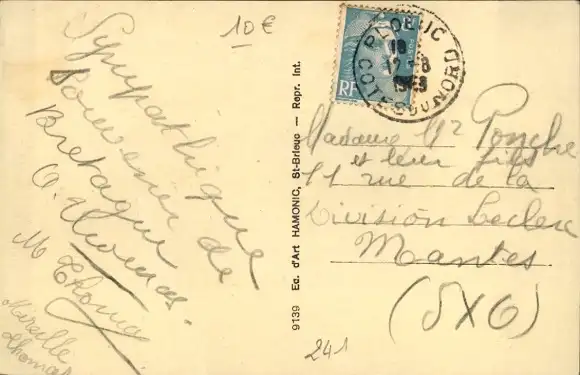 10€
Sympathique
souvenir de
Bretagne
O. Thomas.
M Thomas
Mireille
Thomas
9139 Ed. d'Art HAMONIC, St-Brieuc — Repr. Int.
RF
PLOEUC
18
12-8
COTES DU NORD
Madame Mr Ponche
et leur fils
11 rue de la
Division Leclerc
Mantes
(SXO)
241